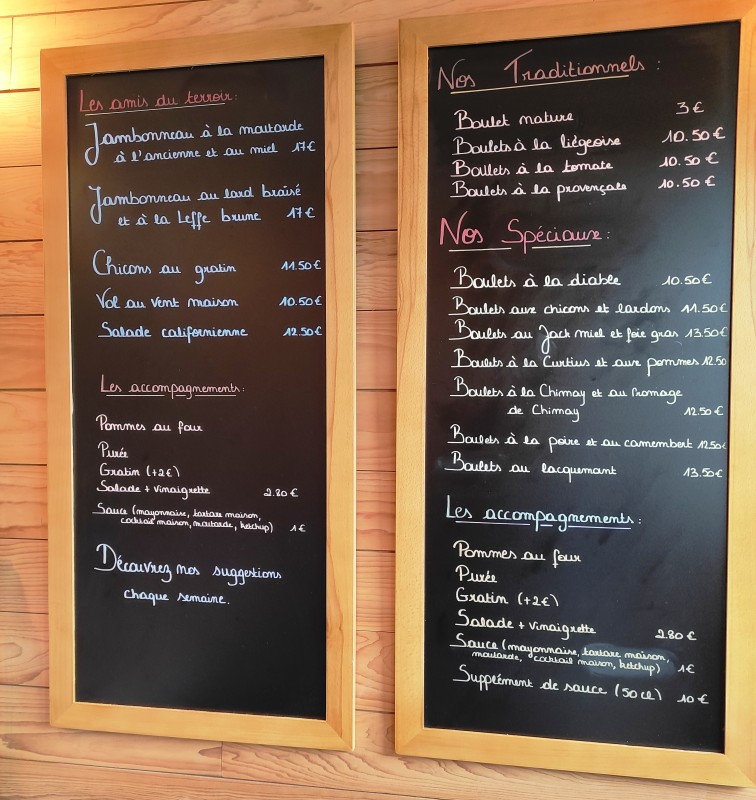 Les amis du terroir:
Jambonneau à la moutarde
à l'ancienne et au miel 17€
Jambonneau au lard braisé
et à la Leffe brune 17€
Chicons au gratin 11.50€
Vol au vent maison 10.50€
Salade californienne 12.50€
Les accompagnements:
Pommes au four
Purée
Gratin (+2€)
Salade + vinaigrette 2.80€
Sauce (mayonnaise, tartare maison,
cocktail maison, moutarde, ketchup) 1€
Découvrez nos suggestions
chaque semaine.
Nos Traditionnels:
Boulet nature 3€
Boulets à la liégeoise 10.50€
Boulets à la tomate 10.50€
Boulets à la provençale 10.50€
Nos Spéciaux:
Boulets à la diable 10.50€
Boulets aux chicons et lardons 11.50€
Boulets au Jack miel et foie gras 13.50€
Boulets à la Curtius et aux pommes 12.50
Boulets à la Chimay et au fromage
de Chimay 12.50€
Boulets à la poire et au camembert 12.50€
Boulets au lacquemant 13.50€
Les accompagnements:
Pommes au four
Purée
Gratin (+2€)
Salade + vinaigrette 2.80€
Sauce (mayonnaise, tartare maison,
moutarde, cocktail maison, ketchup) 1€
Supplément de sauce (50cl) 10€